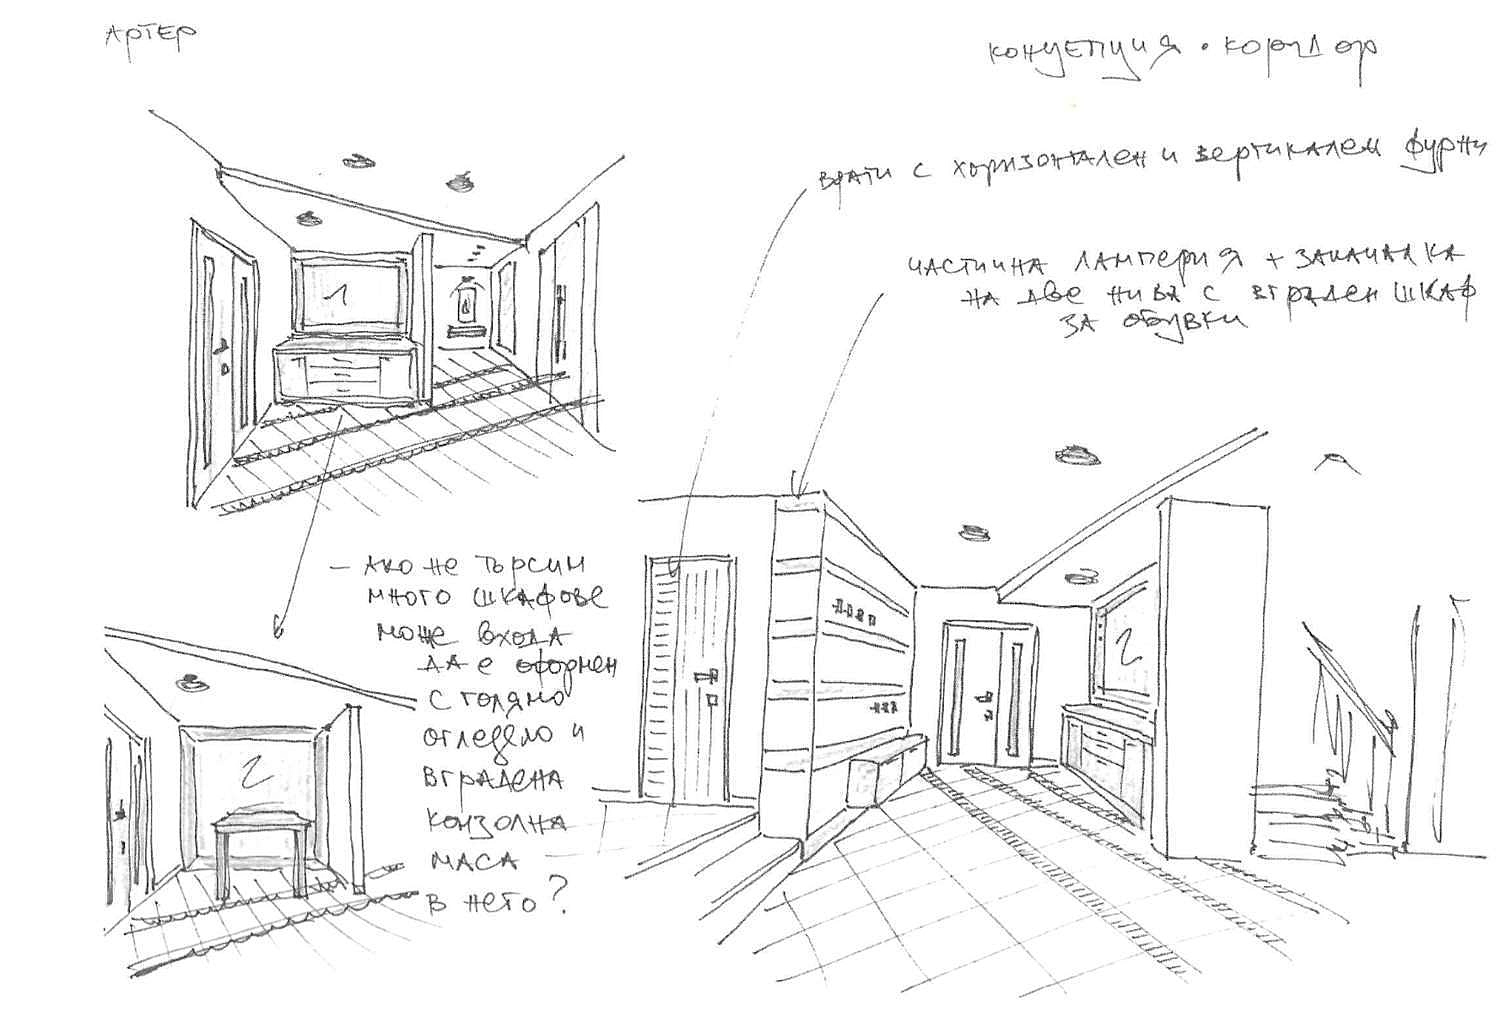 АРТЕР
КОНЦЕПЦИЯ • КОРИДОР
ВРАТИ С ХОРИЗОНТАЛЕН И ВЕРТИКАЛЕН ФУРНИ
ЧАСТИЧНА ЛАМПЕРИЯ + ЗАКАЧАЛКА
НА ДВЕ НИВА С ВГРАДЕН ШКАФ
ЗА ОБУВКИ
1
– АКО НЕ ТЪРСИМ
МНОГО ШКАФОВЕ
МОЖЕ ВХОДА
ДА Е ОФОРМЕН
С ГОЛЯМО
ОГЛЕДАЛО И
ВГРАДЕНА
КОНЗОЛНА
МАСА
В НЕГО?
2
2